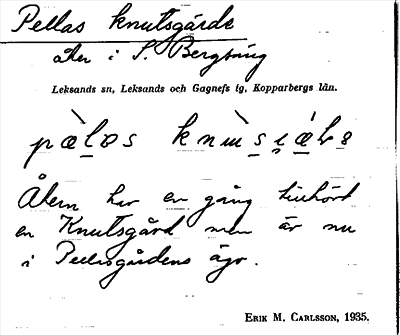 Pellas Knutsgärde
åker i S. Bergsäng
Leksands sn, Leksands och Gagnefs tg, Kopparbergs län.
Åkern har en gång tillhört
en Knutsgård men är nu
i Pellasgårdens ägo.
ERIK M. CARLSSON, 1935.